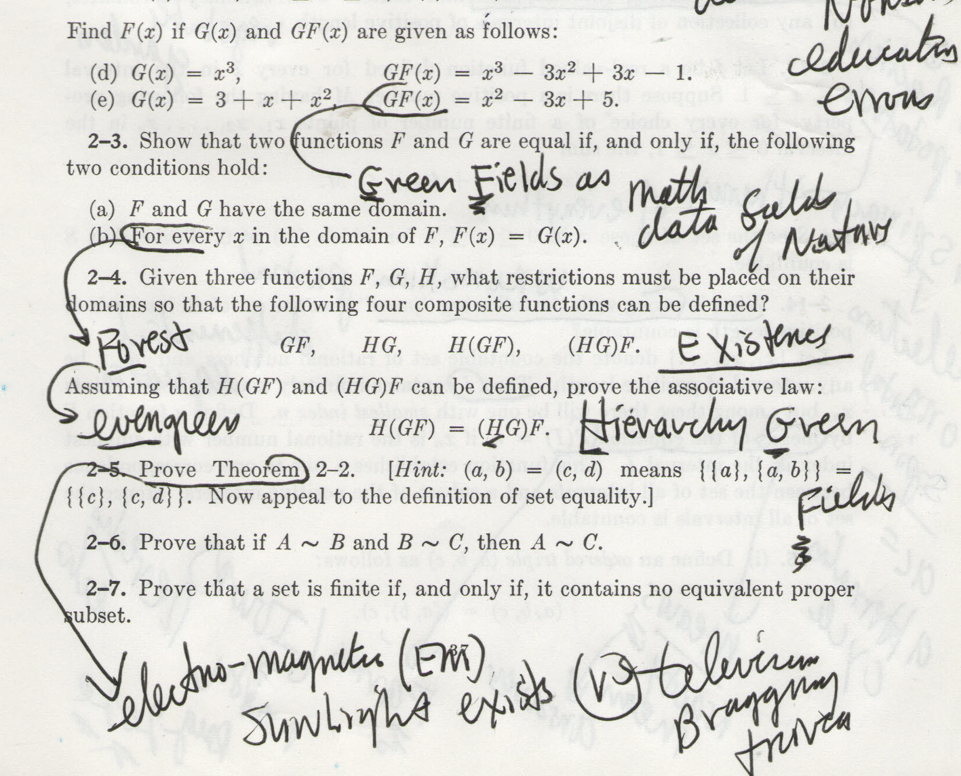 Find F(x) if G(x) and GF(x) are given as follows:
educators
errors
(d) G(x) = x³, GF(x) = x³ − 3x² + 3x − 1.
(e) G(x) = 3 + x + x², GF(x) = x² − 3x + 5.
2–3. Show that two functions F and G are equal if, and only if, the following
two conditions hold:
Green Fields as math
data fields
of Nature
(a) F and G have the same domain.
(b) For every x in the domain of F, F(x) = G(x).
2–4. Given three functions F, G, H, what restrictions must be placed on their
domains so that the following four composite functions can be defined?
Forest
GF, HG, H(GF), (HG)F.
Existence
Assuming that H(GF) and (HG)F can be defined, prove the associative law:
evergreen
H(GF) = (HG)F.
Hierarchy Green
Fields
2–5. Prove Theorem 2–2. [Hint: (a, b) = (c, d) means {{a}, {a, b}} =
{{c}, {c, d}}. Now appeal to the definition of set equality.]
2–6. Prove that if A ∼ B and B ∼ C, then A ∼ C.
2–7. Prove that a set is finite if, and only if, it contains no equivalent proper
subset.
electro-magnetic (EM)
Sunlight exists
television
Bragging